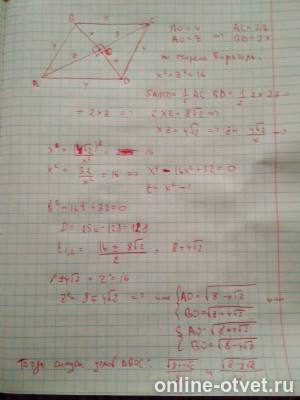 B C
A D
O
BO = x AC = 2z
AO = z => BD = 2x
по теореме Пифагора:
x² + z² = 16
S_ABCD = 1/2 AC · BD = 1/2 2x · 2z =
= 2xz => 2xz = 8√2 =>
xz = 4√2 => z = 4√2/x =>
x² + (4√2)²/x² = 16
x² + 32/x² = 16 => x⁴ - 16x² + 32 = 0
t = x² =>
t² - 16t + 32 = 0
D = 256 - 128 = 128
t₁,₂ = (16 ± 8√2)/2 = 8 ± 4√2
8 ± 4√2 + z² = 16
z² = 8 ∓ 4√2 => { AO = √(8 - 4√2)
{ BO = √(8 + 4√2)
{ AO = √(8 + 4√2)
{ BO = √(8 - 4√2)
Тогда
online-otvet.ru